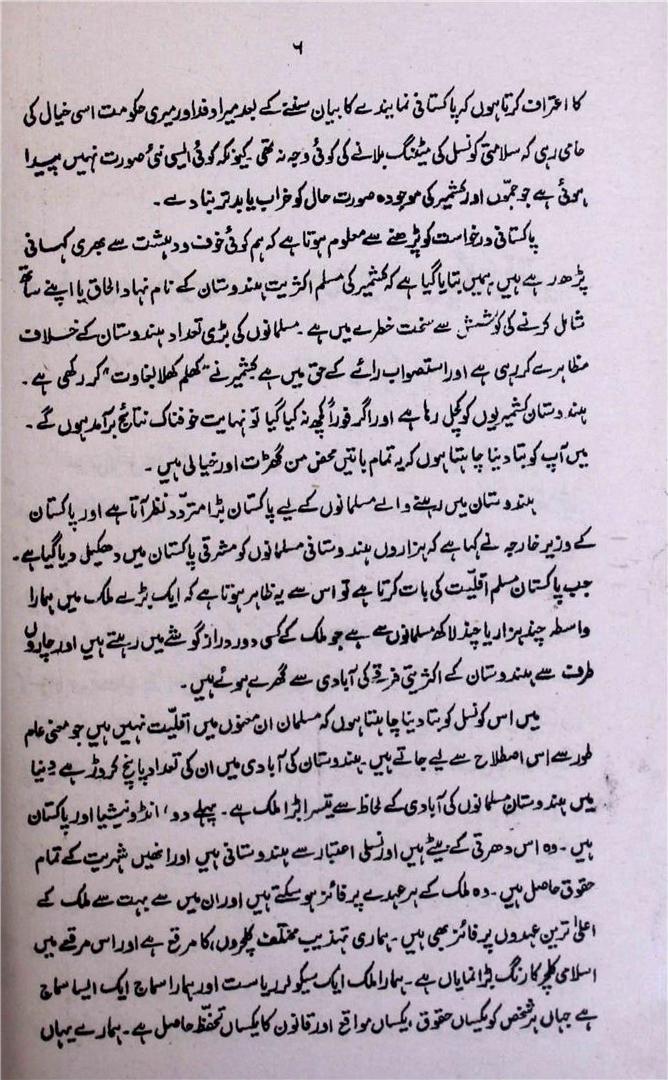 ۶
کا اعتراف کرتا ہوں کہ پاکستانی نمایندے کا بیان سننے کے بعد میرا وفد اور میری حکومت اسی خیال کی
حامی رہی کہ سلامتی کونسل کی میٹنگ بلانے کی کوئی وجہ نہ تھی کیونکہ کوئی ایسی نئی صورت نہیں پیدا
ہوئی ہے جو جموں اور کشمیر کی موجودہ صورت حال کو خراب یا بدتر بنا دے۔
پاکستانی درخواست کو پڑھنے سے معلوم ہوتا ہے کہ ہم کوئی خوف و دہشت سے بھری کہانی
پڑھ رہے ہیں ہمیں بتایا گیا ہے کہ کشمیر کی مسلم اکثریت ہندوستان کے نام نہاد الحاق یا اپنے ساتھ
شامل کرنے کی کوشش سے سخت خطرے میں ہے۔ مسلمانوں کی بڑی تعداد ہندوستان کے خلاف
مظاہرے کر رہی ہے اور استصواب رائے کے حق میں ہے کشمیر نے "کھلم کھلا بغاوت" کر رکھی ہے۔
ہندوستان کشمیریوں کو کچل رہا ہے اور اگر فوراً کچھ نہ کیا گیا تو نہایت خوفناک نتائج برآمد ہوں گے۔
میں آپ کو بتا دینا چاہتا ہوں کہ یہ تمام باتیں محض من گھڑت اور خیالی ہیں۔
ہندوستان میں رہنے والے مسلمانوں کے لیے پاکستان بڑا متردّد نظر آتا ہے اور پاکستان
کے وزیر خارجہ نے کہا ہے کہ ہزاروں ہندوستانی مسلمانوں کو مشرقی پاکستان میں دھکیل دیا گیا ہے۔
جب پاکستان مسلم اقلیت کی بات کرتا ہے تو اس سے یہ ظاہر ہوتا ہے کہ ایک بڑے ملک میں ہمارا
واسطہ چند ہزار یا چند لاکھ مسلمانوں سے ہے جو ملک کے کسی دور دراز گوشے میں رہتے ہیں اور چاروں
طرف سے ہندوستان کے اکثریتی فرقے کی آبادی سے گھرے ہوئے ہیں۔
میں اس کونسل کو بتا دینا چاہتا ہوں کہ مسلمان ان معنوں میں اقلیت نہیں ہیں جو معنی عام
طور سے اس اصطلاح سے لیے جاتے ہیں۔ ہندوستان کی آبادی میں ان کی تعداد پانچ کروڑ ہے دنیا
میں ہندوستان مسلمانوں کی آبادی کے لحاظ سے تیسرا بڑا ملک ہے۔ پہلے دو، انڈونیشیا اور پاکستان
ہیں۔ وہ اس دھرتی کے بیٹے ہیں اور نسلی اعتبار سے ہندوستانی ہیں اور انھیں شہریت کے تمام
حقوق حاصل ہیں۔ وہ ملک کے ہر عہدے پر فائز ہو سکتے ہیں اور ان میں سے بہت سے ملک کے
اعلیٰ ترین عہدوں پر فائز بھی ہیں۔ ہماری تہذیب مختلف کلچروں کا مرقع ہے اور اس مرقعے میں
اسلامی کلچر کا رنگ بڑا نمایاں ہے۔ ہمارا ملک ایک سیکولر ریاست اور ہمارا سماج ایک ایسا سماج
ہے جہاں ہر شخص کو یکساں حقوق، یکساں مواقع اور قانون کا یکساں تحفّظ حاصل ہے۔ ہمارے یہاں